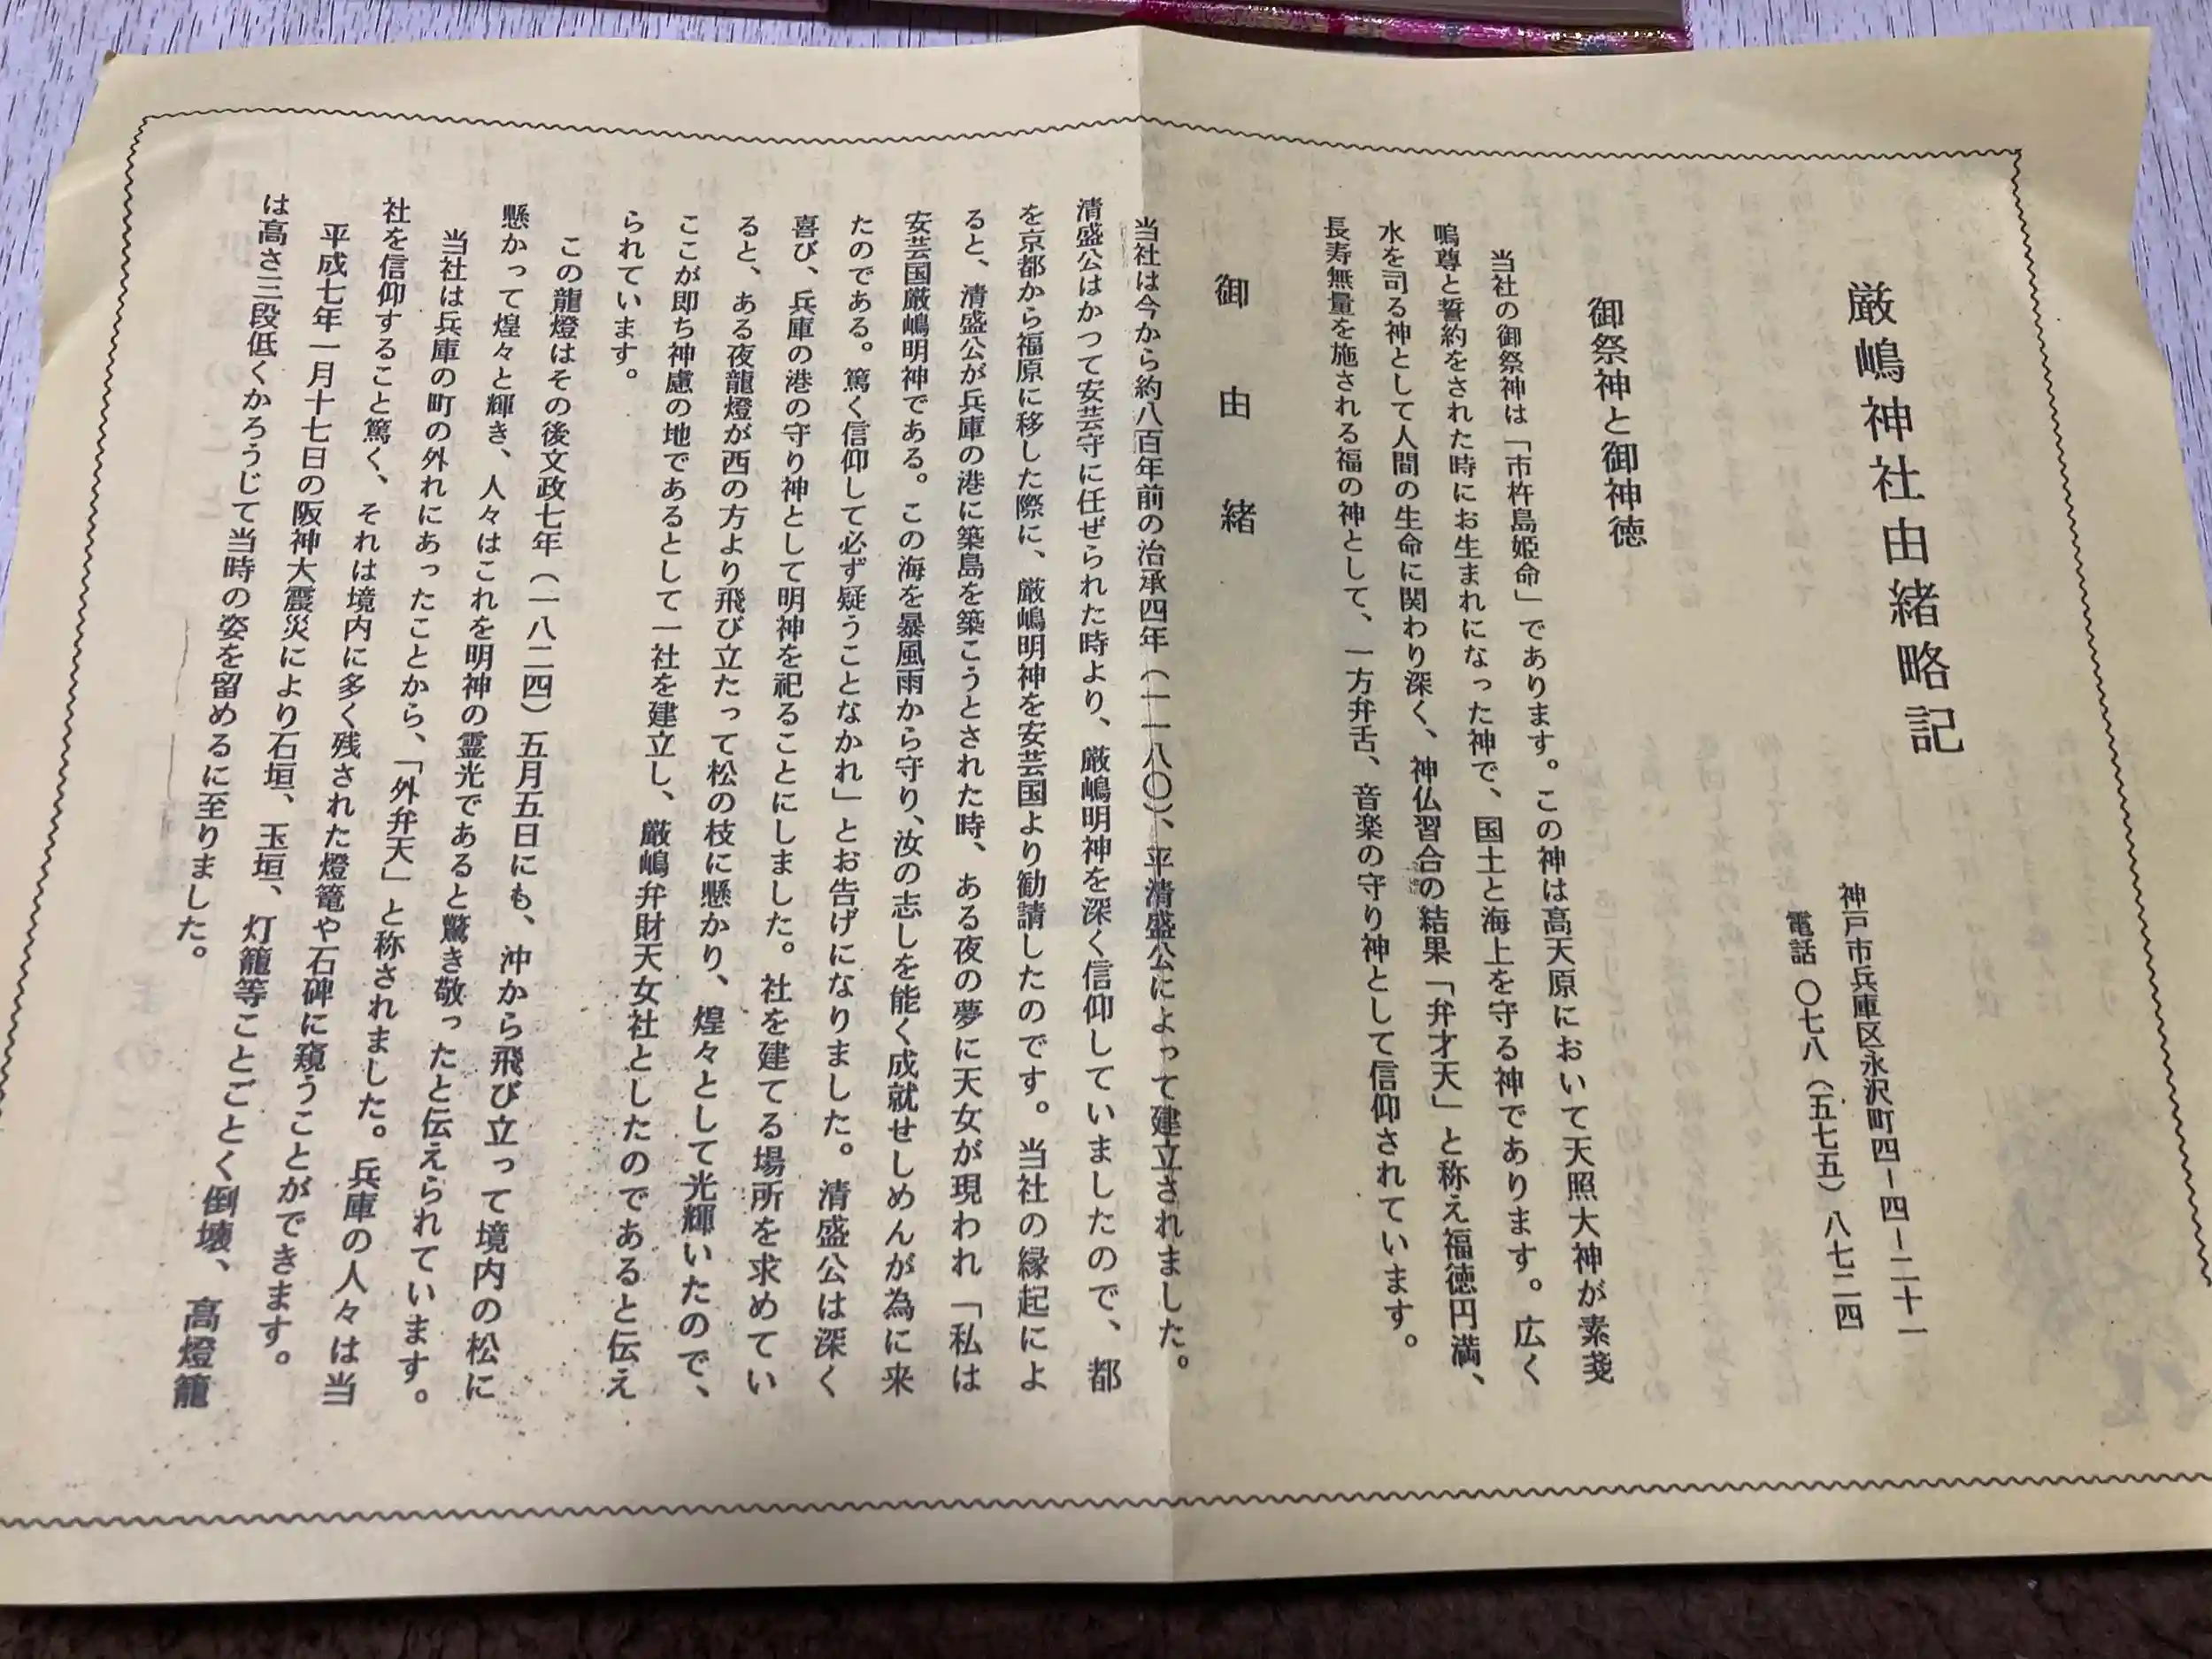 厳嶋神社由緒略記
神戸市兵庫区永沢町四−四−二十一
電話 〇七八（五七五）八七二四
御祭神と御神徳
当社の御祭神は「市杵島姫命」であります。この神は高天原において天照大神が素戔
嗚尊と誓約をされた時にお生まれになった神で、国土と海上を守る神であります。広く
水を司る神として人間の生命に関わり深く、神仏習合の結果「弁才天」と称え福徳円満、
長寿無量を施される福の神として、一方弁舌、音楽の守り神として信仰されています。
御由緒
当社は今から約八百年前の治承四年（一一八〇）、平清盛公によって建立されました。
清盛公はかつて安芸守に任ぜられた時より、厳嶋明神を深く信仰していましたので、都
を京都から福原に移した際に、厳嶋明神を安芸国より勧請したのです。当社の縁起によ
ると、清盛公が兵庫の港に築島を築こうとされた時、ある夜の夢に天女が現われ「私は
安芸国厳嶋明神である。この海を暴風雨から守り、汝の志しを能く成就せしめんが為に来
たのである。篤く信仰して必ず疑うことなかれ」とお告げになりました。清盛公は深く
喜び、兵庫の港の守り神として明神を祀ることにしました。社を建てる場所を求めてい
ると、ある夜龍燈が西の方より飛び立たって松の枝に懸かり、煌々として光輝いたので、
ここが即ち神慮の地であるとして一社を建立し、厳嶋弁財天女社としたのであると伝え
られています。
この龍燈はその後文政七年（一八二四）五月五日にも、沖から飛び立って境内の松に
懸かって煌々と輝き、人々はこれを明神の霊光であると驚き敬ったと伝えられています。
当社は兵庫の町の外れにあったことから、「外弁天」と称されました。兵庫の人々は当
社を信仰すること篤く、それは境内に多く残された燈篭や石碑に窺うことができます。
平成七年一月十七日の阪神大震災により石垣、玉垣、灯籠等ことごとく倒壊、高燈籠
は高さ三段低くかろうじて当時の姿を留めるに至りました。